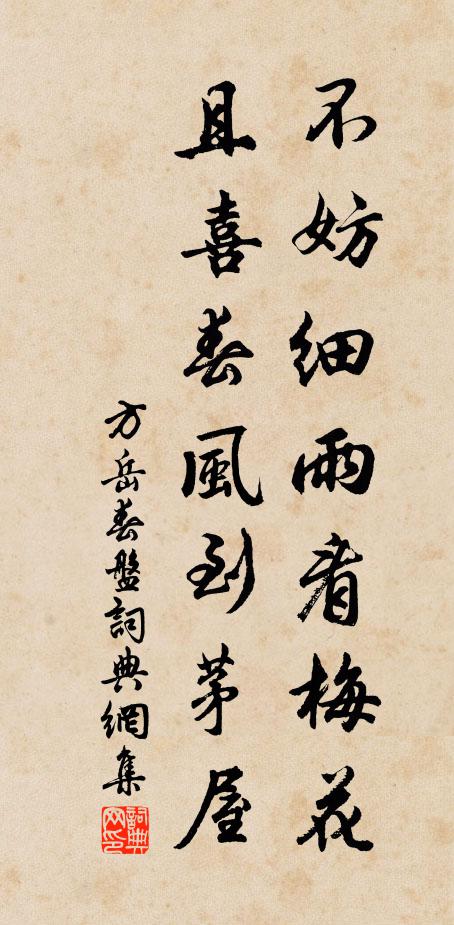 不妨細雨看梅花
且喜春風到茅屋
方岳春盤詞典網集
詞典网印